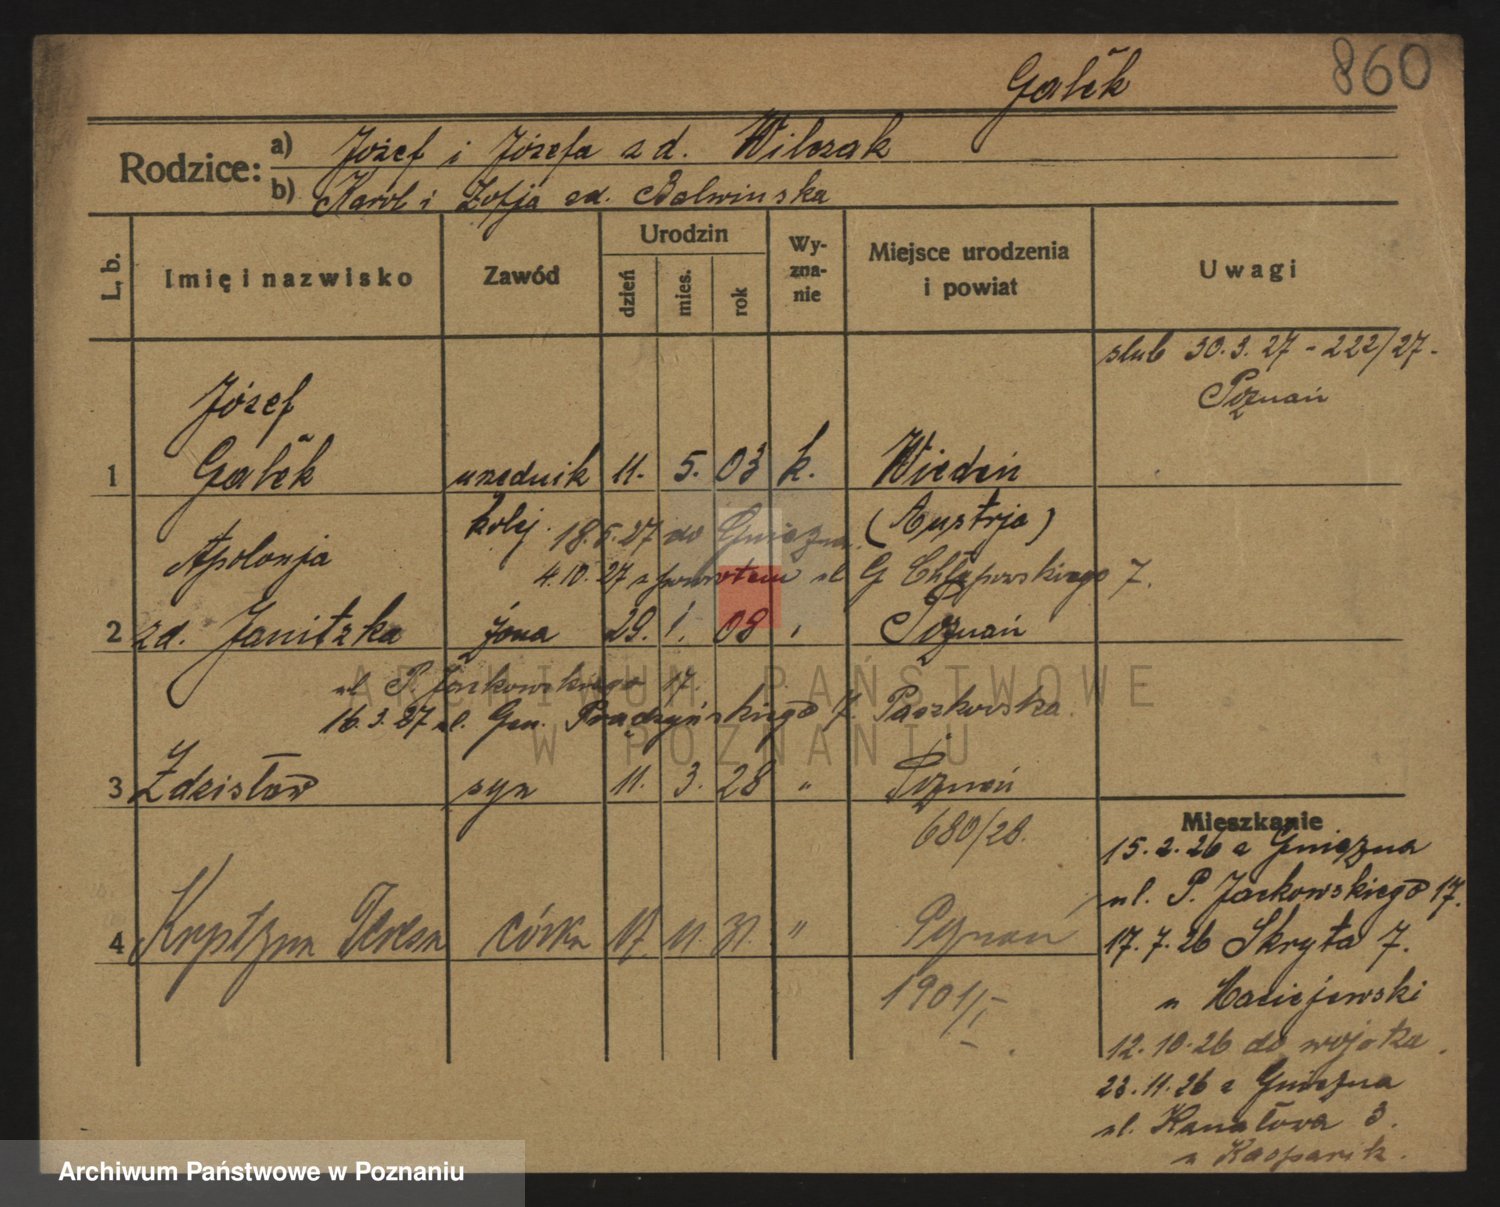 Galěk
860
Rodzice:
a) Józef i Józefa zd. Wilczak
b) Karol i Zofja zd. Balwinska
L, b.
Imię i nazwisko
Zawód
Urodzin
dzień
mies.
rok
Wy-
zna-
nie
Miejsce urodzenia
i powiat
Uwagi
slub 30.3.27 - 222/27.
Poznań
Józef
1 Galěk urzednik 11. 5. 03 k. Wiedeń
kolej. (Austrja)
18.5.27 do Gniezna
Apolonja
4.10.27 z powrotem ul G Chłapowskiego 7.
2 zd. Janitzka żona 29. 1. 08 Poznań
ul. P. Jackowskiego 17.
16.3.27 ul. Gen. Prądzyńskiego 7. Paszkowska
3 Zdzisław syn 11. 3. 28 " Poznań
680/28.
4 Krystyna Teresa córka 17. 11. 31. " Poznań
1901/I
Mieszkanie
15.2.26 z Gniezna
ul. P. Jackowskiego 17.
17.7.26 Skryta 7.
u Maciejewski
12.10.26 do wojska.
23.11.26 z Gniezna
ul. Kanałowa 3.
u Kasparik.
ARCHIWUM PAŃSTWOWE
W POZNANIU
Archiwum Państwowe w Poznaniu